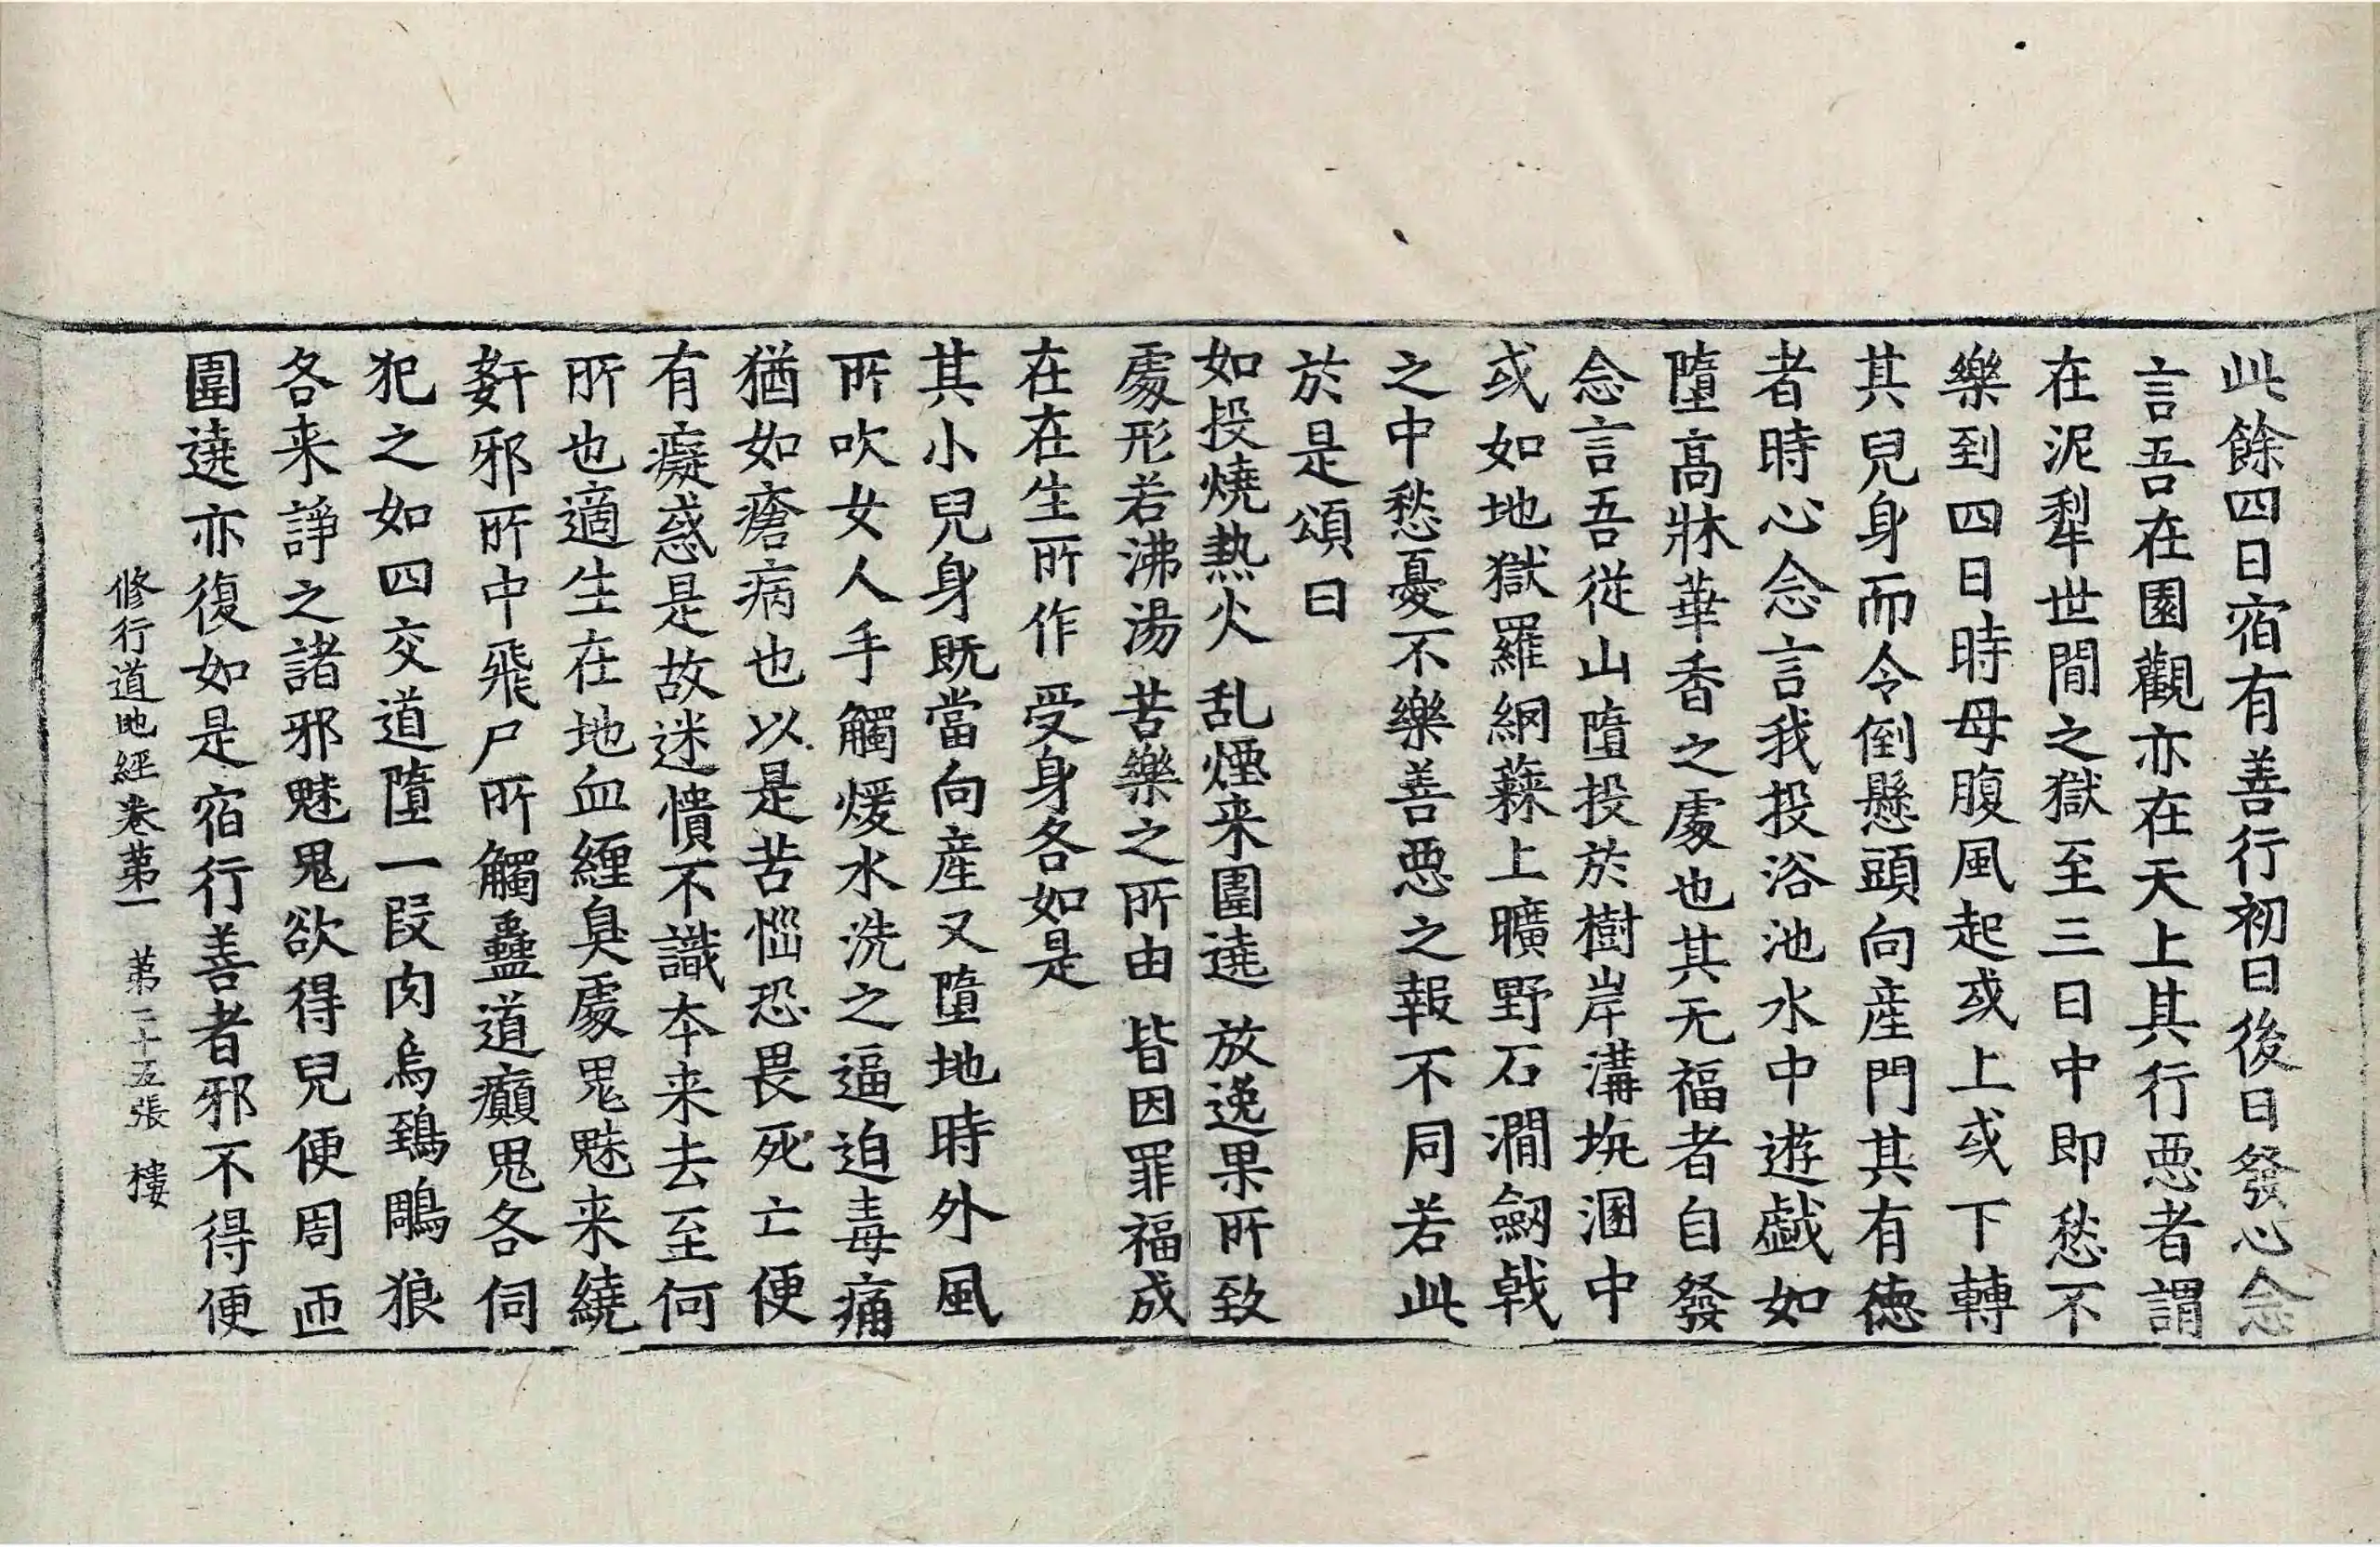 此餘四日宿有善行初日後日發心念
言吾在園觀亦在天上其行惡者謂
在泥犁世間之獄至三日中即愁不
樂到四日時母腹風起或上或下轉
其兒身而令倒懸頭向産門其有德
者時心念言我投浴池水中遊戲如
墮高牀華香之處也其无福者自發
念言吾從山墮投於樹岸溝坑溷中
或如地獄羅網蕀上曠野石澗劒戟
之中愁憂不樂善惡之報不同若此
於是頌曰
如投燒熱火 乱煙来圍遶 放逸果所致
處形若沸湯 苦樂之所由 皆因罪福成
在在生所作 受身各如是
其小兒身既當向産又墮地時外風
所吹女人手觸煖水洗之逼迫毒痛
猶如瘡病也以是苦惱恐畏死亡便
有癡惑是故迷憒不識本来去至何
所也適生在地血纏臭處鬼魅来繞
姧邪所中飛尸所觸蠱道癲鬼各伺
犯之如四交道墮一段肉烏鵄鵰狼
各来諍之諸邪魅鬼欲得兒便周匝
圍遶亦復如是宿行善者邪不得便
修行道地經卷第一 第二十五張 樓